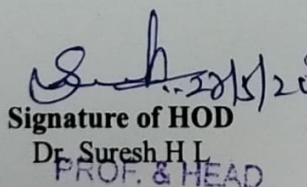 28/5/20
Signature of HOD
Dr. Suresh H L
PROF. & HEAD